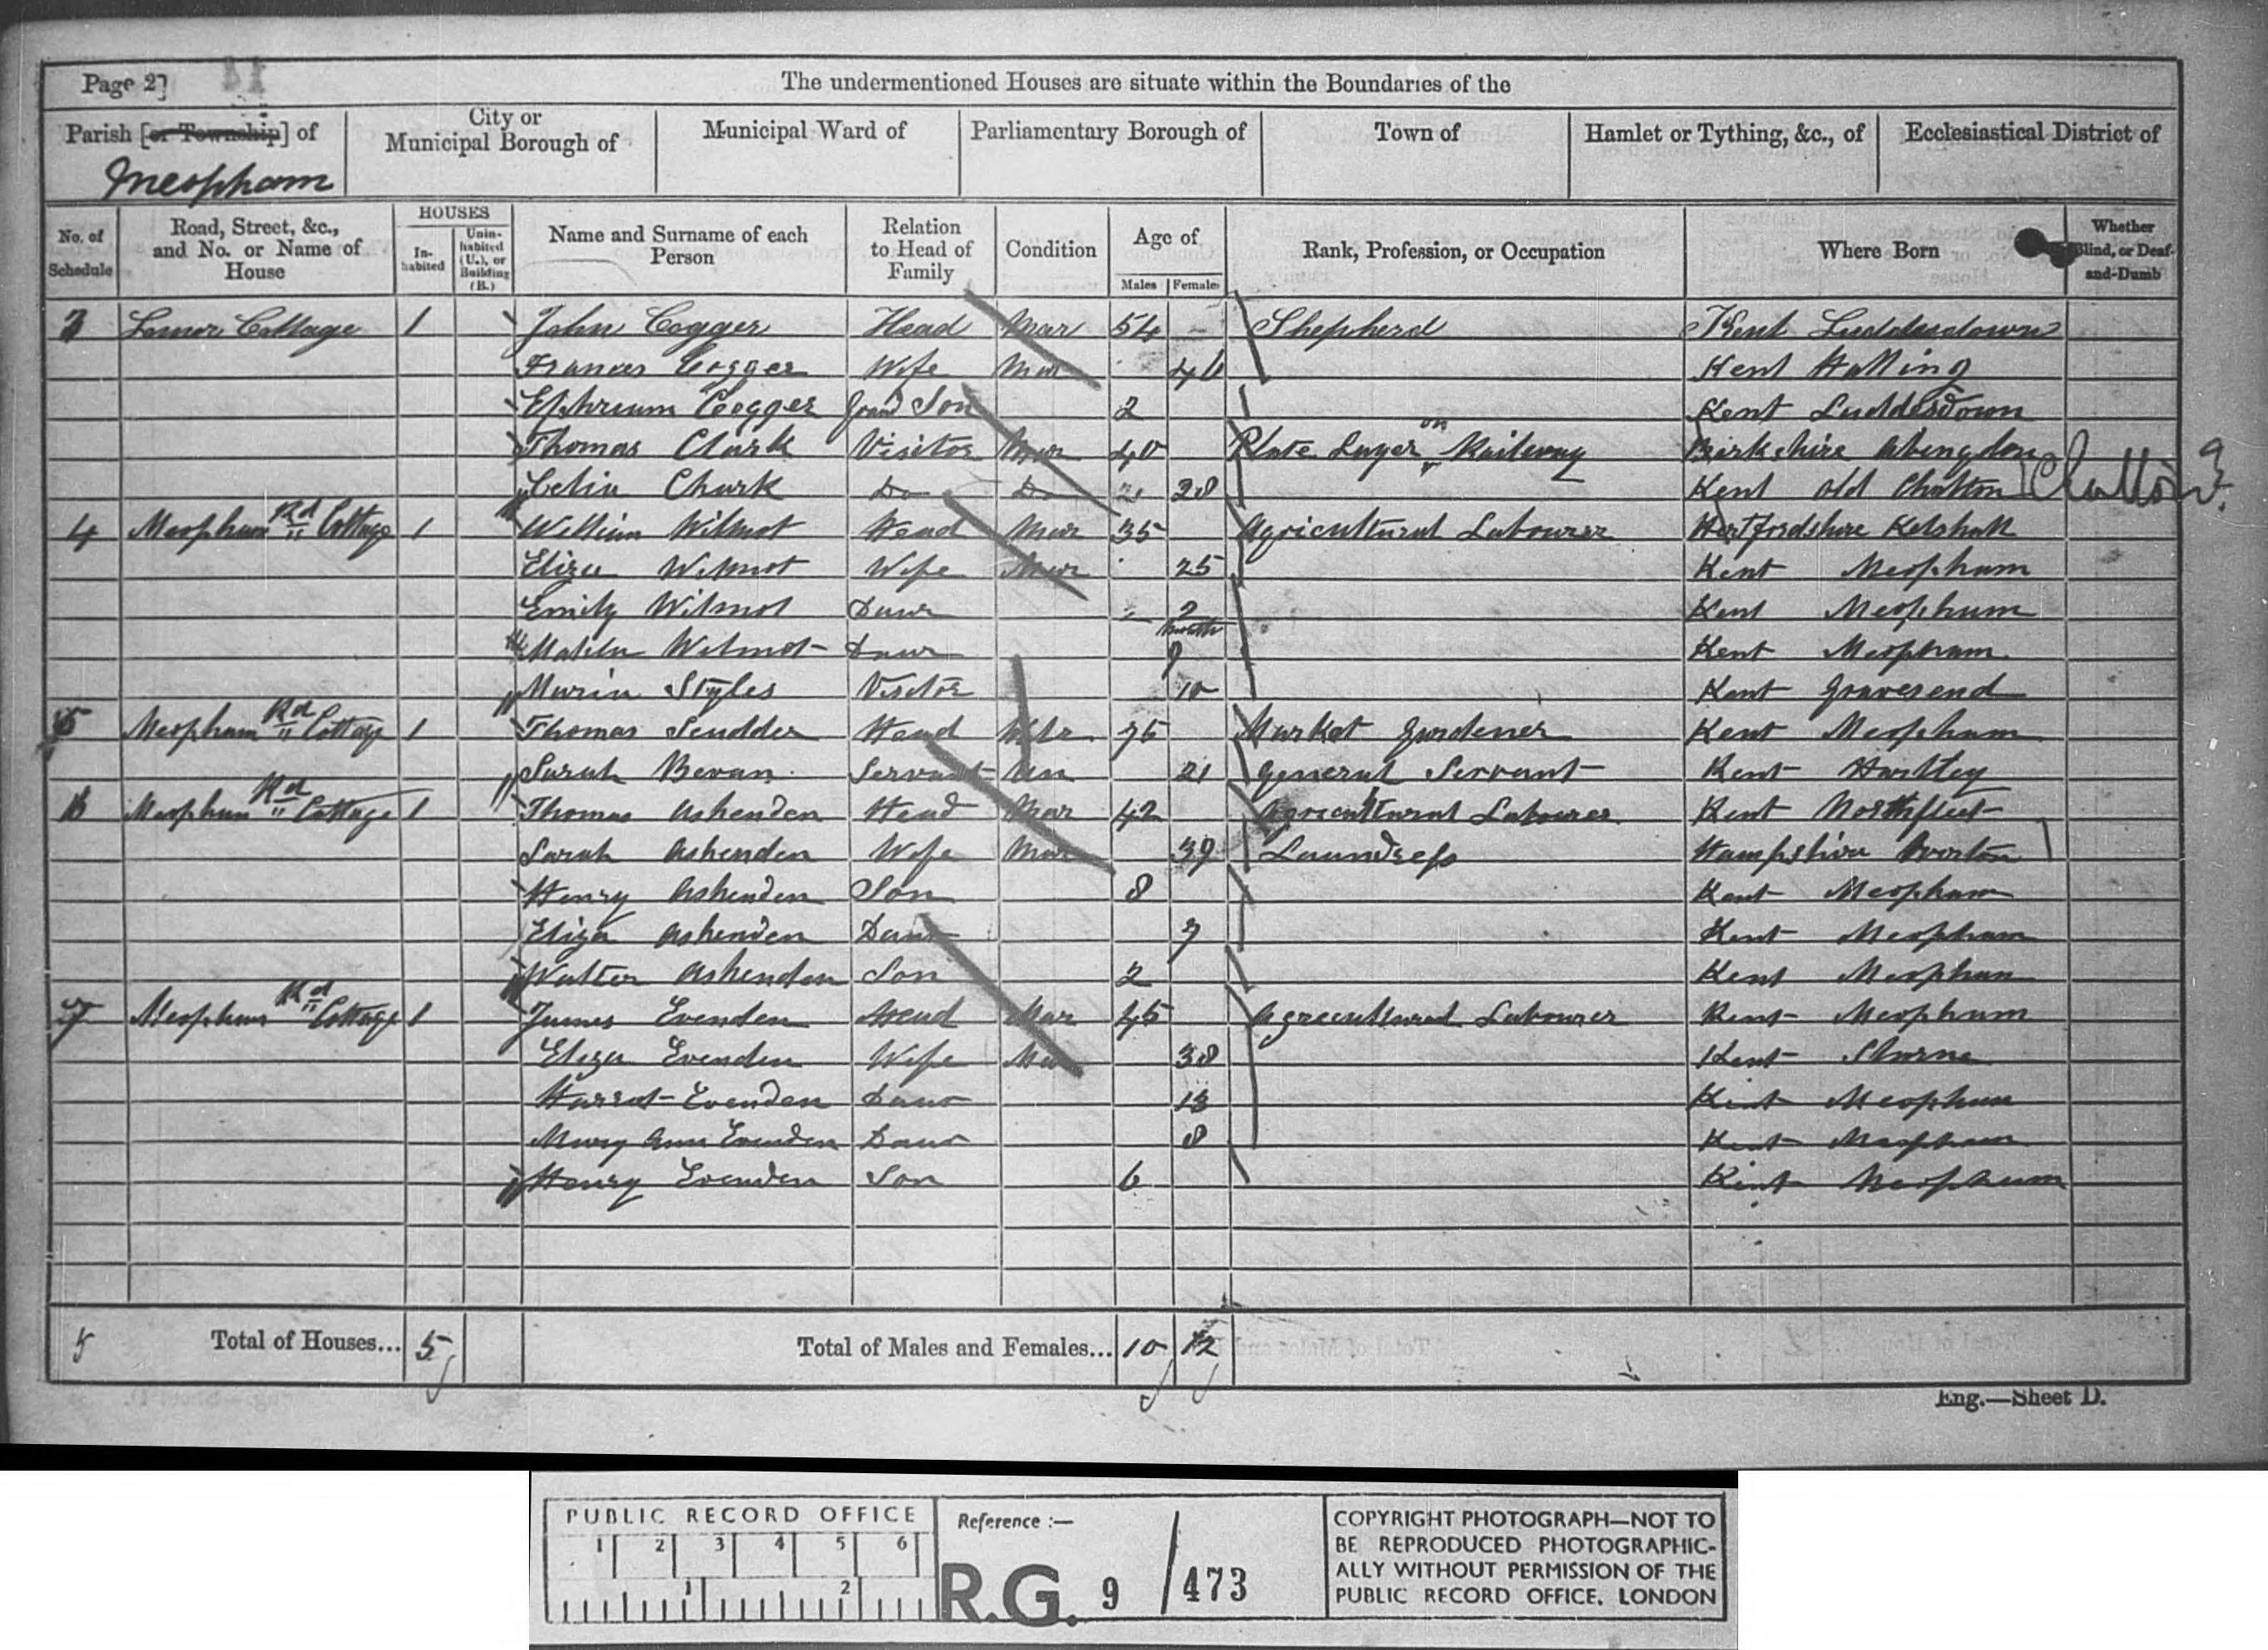 Page 2]
The undermentioned Houses are situate within the Boundaries of the
Parish [or Township] of
Meopham
City or
Municipal Borough of
Municipal Ward of
Parliamentary Borough of
Town of
Hamlet or Tything, &c., of
Ecclesiastical District of
No. of
Schedule
Road, Street, &c.,
and No. or Name of
House
HOUSES
In-
habited
Unin-
habited
(U.), or
Building
(B.)
Name and Surname of each
Person
Relation
to Head of
Family
Condition
Age of
Males Females
Rank, Profession, or Occupation
Where Born
Whether
Blind, or Deaf-
and-Dumb
3 Cottage 1 John Cogger Head Mar 54 Shepherd Kent Luddesdown
Frances Cogger Wife Mar 46 Kent Halling
Ephrium Cogger Grand Son 2 Kent Luddesdown
Thomas Clark Visitor Mar 40 Plate Layer on Railway Birkshire Abingdon
Celia Clark Do Do 28 Kent Old Chalton Chalton?
4 Meopham Rd Cottage 1 William Wilmot Head Mar 35 Agricultural Labourer Hertfordshire Kelshall
Eliza Wilmot Wife Mar 25 Kent Meopham
Emily Wilmot Daur 2 Kent Meopham
Wilmot Daur months 9 Kent Meopham
Maria Styles Visitor 10 Kent Gravesend
5 Meopham Rd Cottage 1 Thomas Scudder Head Widr 75 Market Gardener Kent Meopham
Sarah Bevan Servant Un 21 General Servant Kent Hartley
6 Meopham Rd Cottage 1 Thomas Ashenden Head Mar 42 Agricultural Labourer Kent Northfleet
Sarah Ashenden Wife Mar 39 Laundress Hampshire Overton
Henry Ashenden Son 8 Kent Meopham
Eliza Ashenden Daur 7 Kent Meopham
Walter Ashenden Son 2 Kent Meopham
7 Meopham Rd Cottage 1 James Evenden Head Mar 45 Agricultural Labourer Kent Meopham
Eliza Evenden Wife Mar 38 Kent Shorne
Harriot Evenden Daur 13 Kent Meopham
Mary Ann Evenden Daur 8 Kent Meopham
Henry Evenden Son 6 Kent Meopham
5 Total of Houses... 5 Total of Males and Females... 10 12
Eng.—Sheet D.
PUBLIC RECORD OFFICE
1 2 3 4 5 6
1 2
Reference :—
R.G. 9 / 473
COPYRIGHT PHOTOGRAPH—NOT TO
BE REPRODUCED PHOTOGRAPHIC-
ALLY WITHOUT PERMISSION OF THE
PUBLIC RECORD OFFICE, LONDON